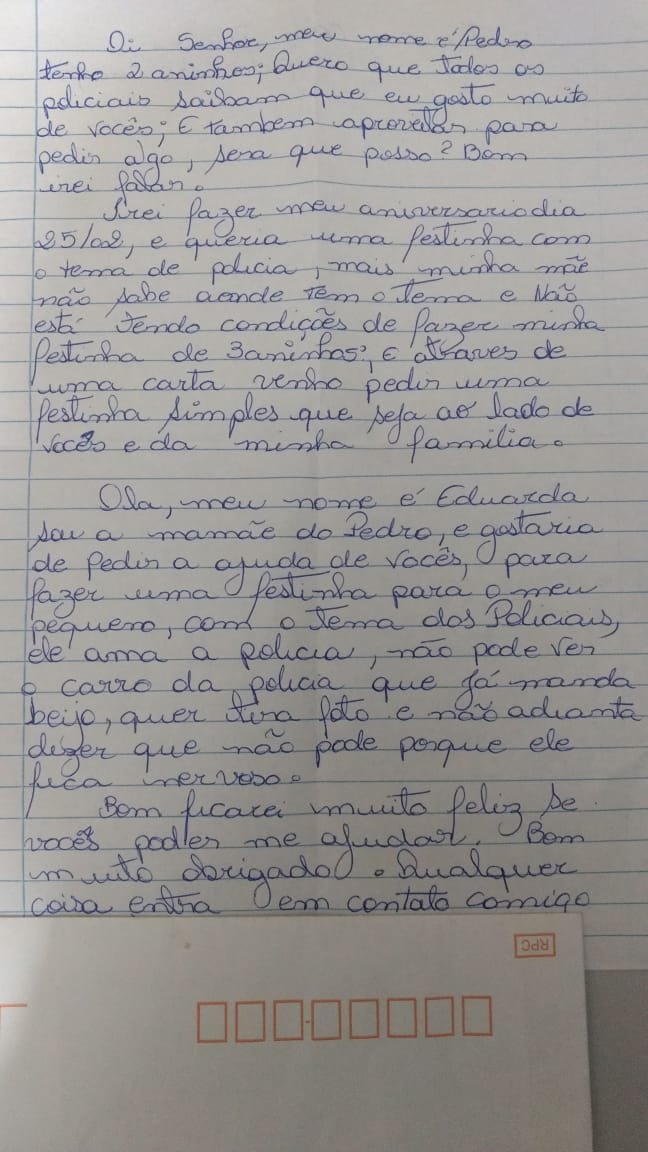 Oi Senhor, meu nome é Pedro
tenho 2 aninhos; Quero que Todos os
policiais saibam que eu gosto muito
de vocês; E também aproveitar para
pedir algo, sera que posso? Bom
irei falar.
Irei fazer meu aniversario dia
25/02, e queria uma festinha com
o tema de policia, mais minha mãe
não sabe aonde Tem o Tema e Não
está Tendo condições de fazer minha
festinha de 3 aninhos; E atraves de
uma carta venho pedir uma
festinha simples que seja ao lado de
vocês e da minha familia.
Ola, meu nome é Eduarda
sou a mamãe do Pedro, e gostaria
de Pedir a ajuda de vocês, para
fazer uma festinha para o meu
pequeno, com o Tema dos Policiais,
ele ama a policia, não pode ver
o carro da policia que já manda
beijo, quer tira foto e não adianta
dizer que não pode porque ele
fica nervoso.
Bom ficarei muito feliz se
vocês poder me ajudar. Bom
muito obrigado. Qualquer
coisa entra em contato comigo
RPC